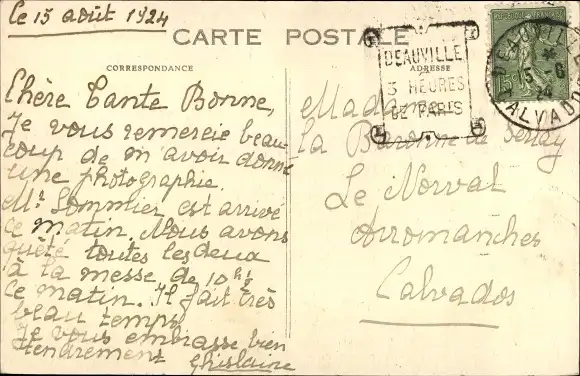 le 15 août 1924
CARTE POSTALE
CORRESPONDANCE
ADRESSE
Chère Tante Bonne,
Je vous remercie beau-
coup de m'avoir donné
une photographie.
Mr Sommier est arrivé
ce matin. Nous avons
quêté toutes les deux
à la messe de 10h½
ce matin. Il fait très
beau temps
Je vous embrasse bien
tendrement Ghislaine
Madame
la Baronne de
Le Norval
Arromanches
Calvados
DEAUVILLE
3 HEURES
DE PARIS
REPUBLIQUE FRANÇAISE
DEAUVILLE
15 -8
24
CALVADOS